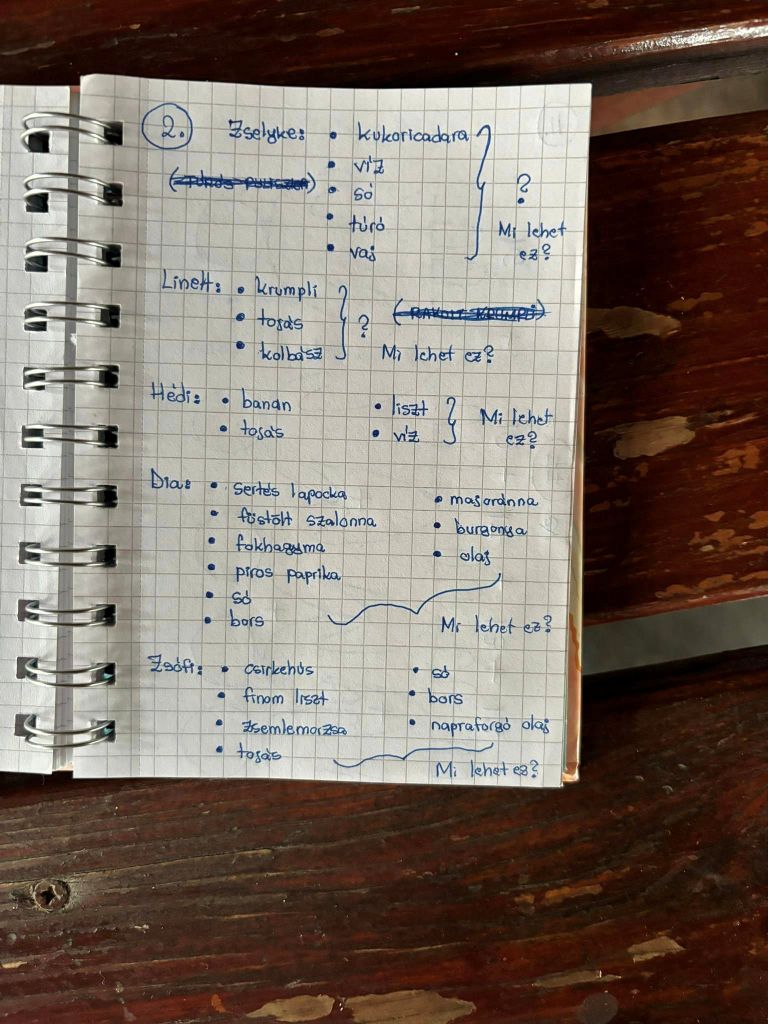 2. Zselyke: • kukoricadara
• víz
• só
• túró
• vaj
?
Mi lehet
ez?
Linett: • krumpli
• tojás
• kolbász
?
Mi lehet ez?
Hédi: • banán • liszt
• tojás • víz
Mi lehet
ez?
Dia: • sertés lapocka • majoránna
• füstölt szalonna • burgonya
• fokhagyma • olaj
• piros paprika
• só
• bors
Mi lehet ez?
Zsófi: • csirkehús • só
• finom liszt • bors
• zsemlemorzsa • napraforgó olaj
• tojás
Mi lehet ez?